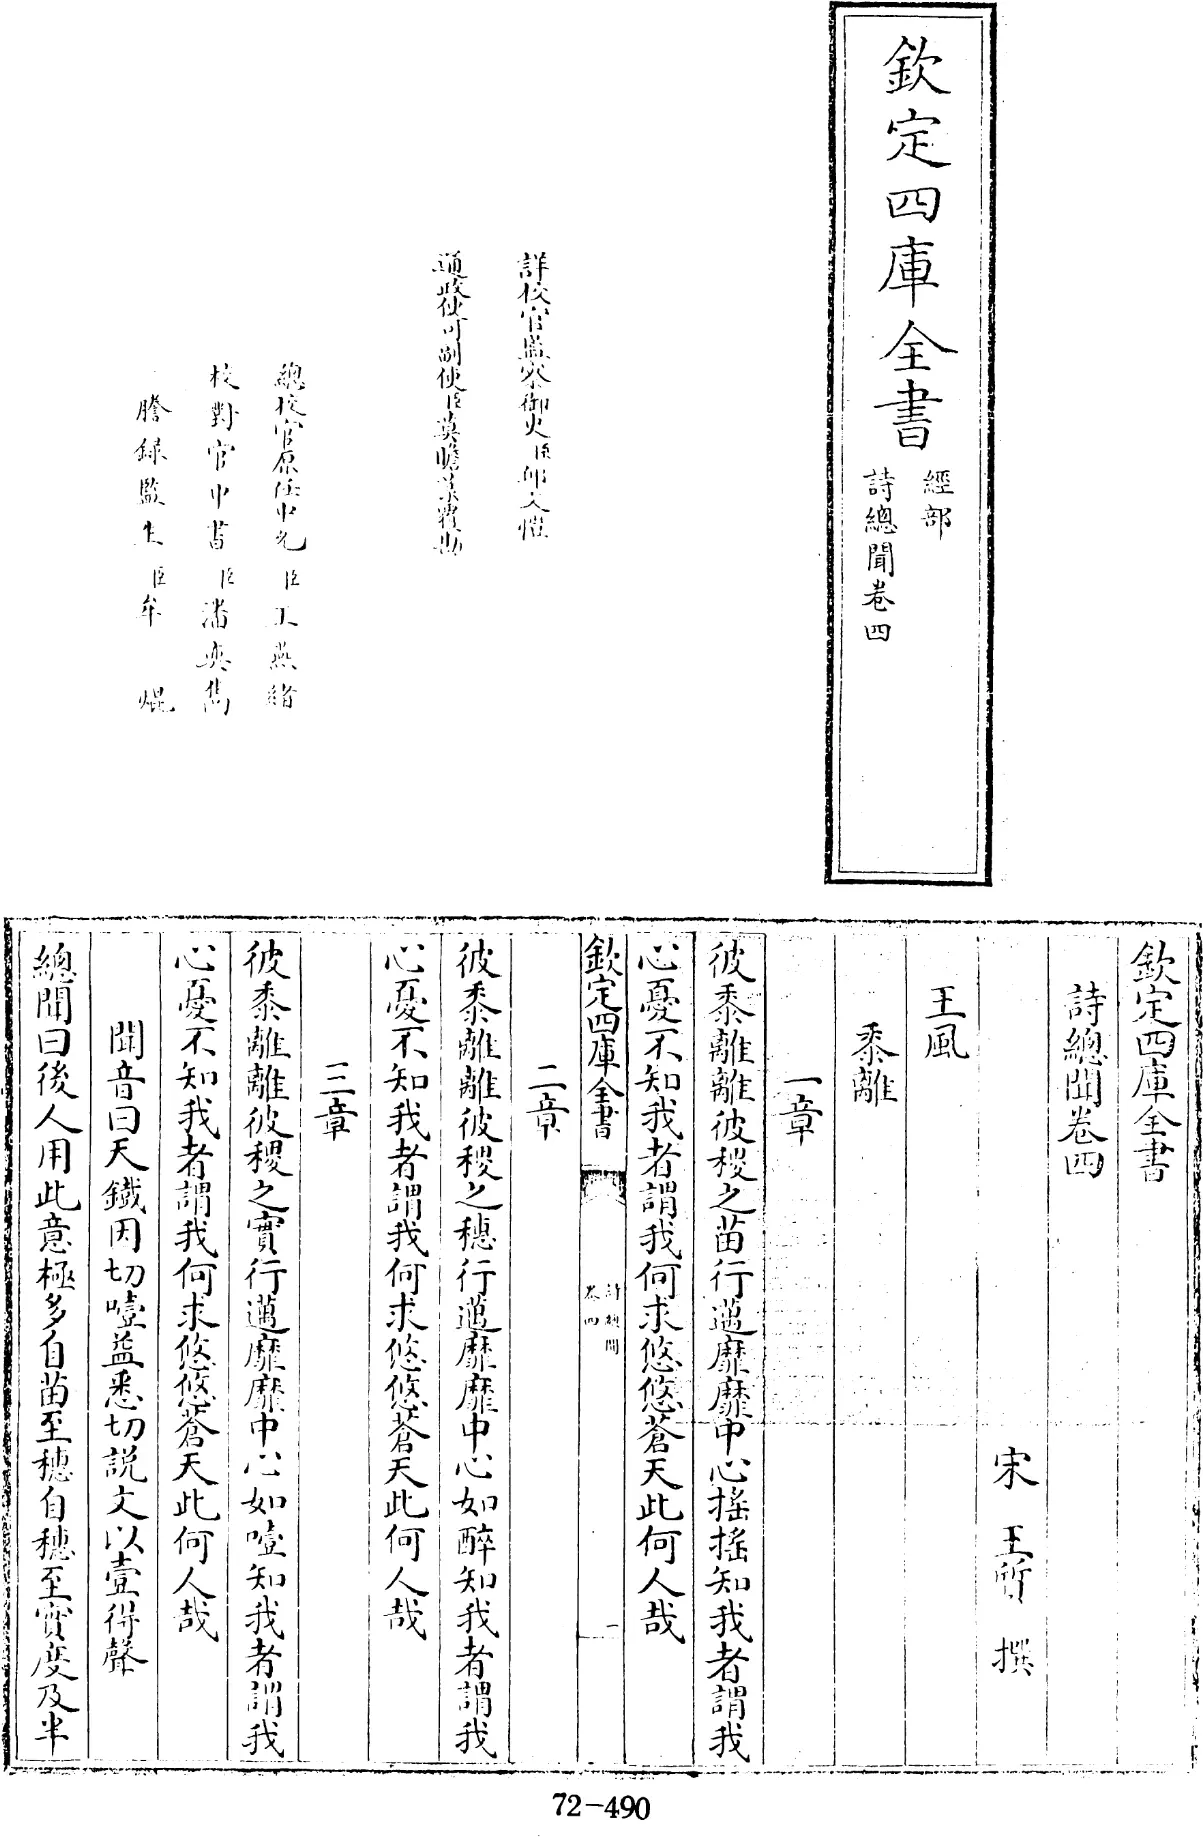 欽定四庫全書
經部
詩總聞卷四
詳校官監察御史臣邱文愷
通政使司副使臣莫瞻菉覆勘
總校官原任中允臣王燕緒
校對官中書臣潘奕雋
謄録監生臣牟焜
欽定四庫全書
詩總聞卷四
宋 王質 撰
王風
黍離
一章
彼黍離離彼稷之苗行邁靡靡中心揺揺知我者謂我
心憂不知我者謂我何求悠悠蒼天此何人哉
欽定四庫全書
詩總聞
卷四
一
二章
彼黍離離彼稷之穗行邁靡靡中心如醉知我者謂我
心憂不知我者謂我何求悠悠蒼天此何人哉
三章
彼黍離離彼稷之實行邁靡靡中心如噎知我者謂我
心憂不知我者謂我何求悠悠蒼天此何人哉
聞音曰天鐵因切噎益悉切説文以壹得聲
總聞曰後人用此意極多自苗至穗自穗至實度及半
72-490